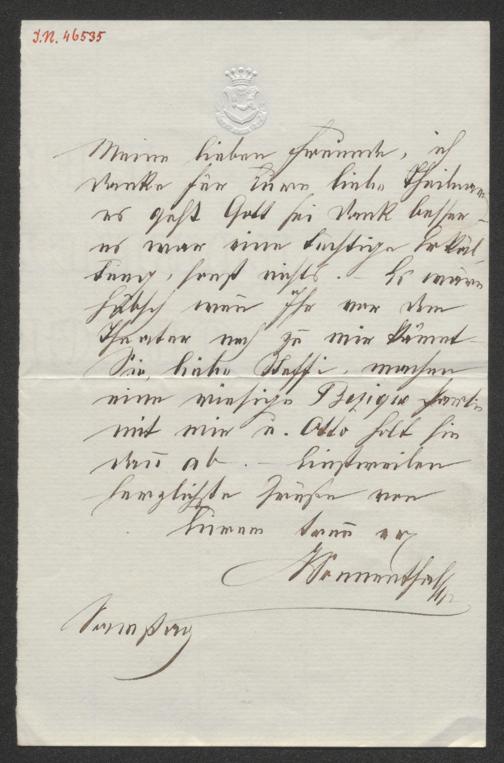 I.N. 46535
Meine lieben Freunde, ich
danke für Eure liebe Theilnahme
es geht Gott sei Dank besser –
es war eine tüchtige Erkäl-
tung, sonst nichts. – Es wäre
hübsch wenn Ihr vor dem
Theater noch zu mir kämet
Sie, liebe Steffi, machen
eine riesige Bezigue Partie
mit mir u. Otto holt Sie
dann ab. – Einstweilen
herzlichste Grüße von
Eurem treu erg
Sonnenthal
Samstag